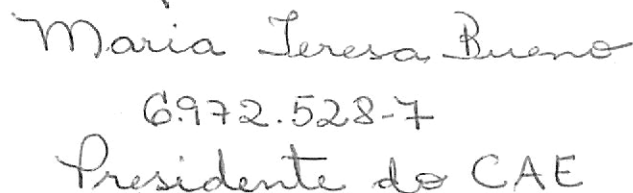 Maria Teresa Bueno
6.972.528-7
Presidente do CAE